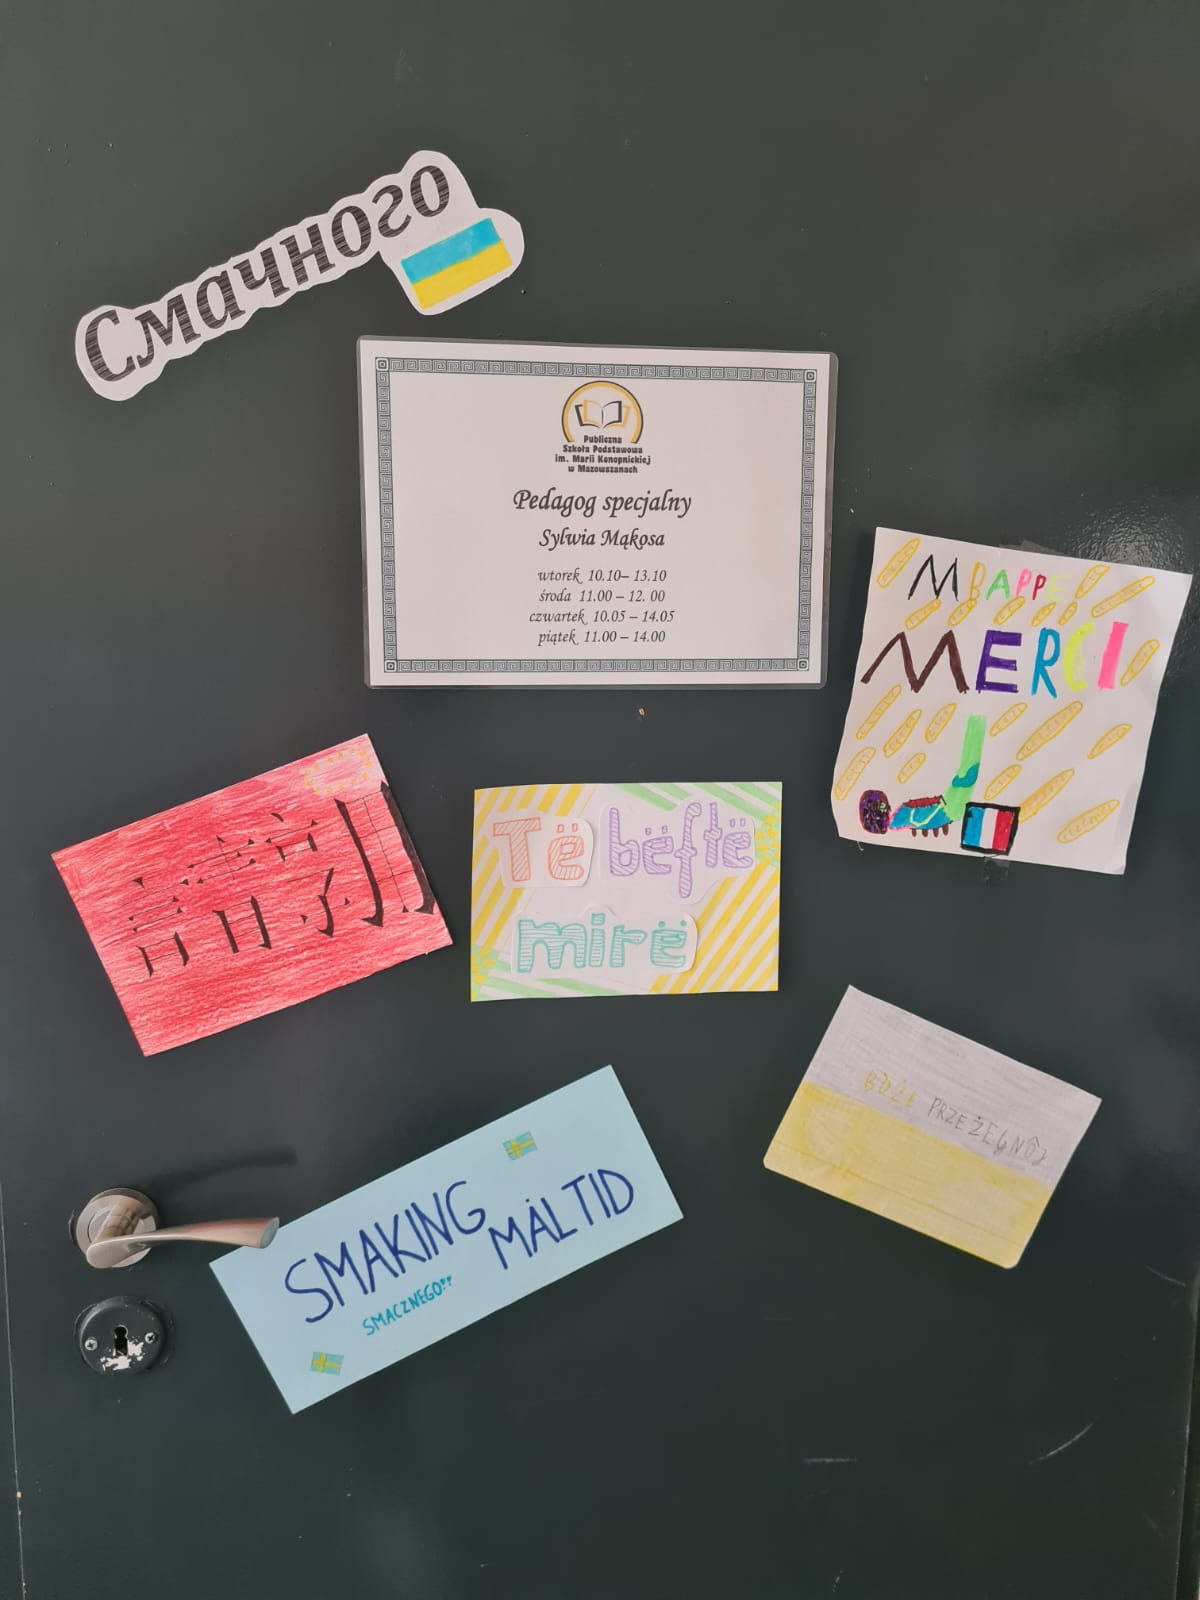 Смачного
Publiczna
Szkoła Podstawowa
im. Marii Konopnickiej
w Mazowszanach
Pedagog specjalny
Sylwia Mąkosa
wtorek 10.10– 13.10
środa 11.00 – 12. 00
czwartek 10.05 – 14.05
piątek 11.00 – 14.00
MBAPPE
MERCI
請別
Të bëftë
mirë
BDZE PRZEŻEGNÔJ
SMAKING MÅLTID
SMACZNEGO!!